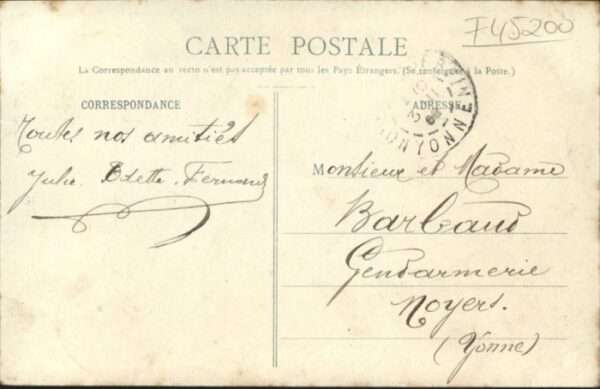 F45200
CARTE POSTALE
La Correspondance au recto n'est pas acceptée par tous les Pays Étrangers. (Se renseigner à la Poste.)
CORRESPONDANCE
ADRESSE
Toutes nos amitiés
Julie Odette Fernand
Monsieur et Madame
Barbaud
Gendarmerie
Noyers.
(Yonne)
YONNE